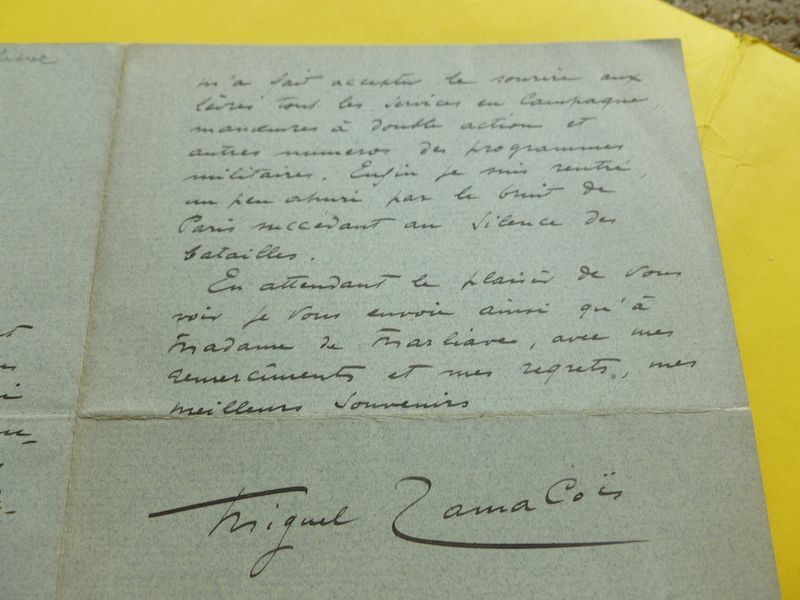 m'a fait accepter le sourire aux
lèvres tous les services en Campagne,
manœuvres à double action et
autres numéros des programmes
militaires. Enfin je suis rentré,
un peu ahuri par le bruit de
Paris succédant au silence des
batailles.
En attendant le plaisir de vous
voir je vous envoie ainsi qu'à
Madame de Marliave, avec mes
remerciments et mes regrets, mes
meilleurs souvenirs
Miguel Zamacoïs